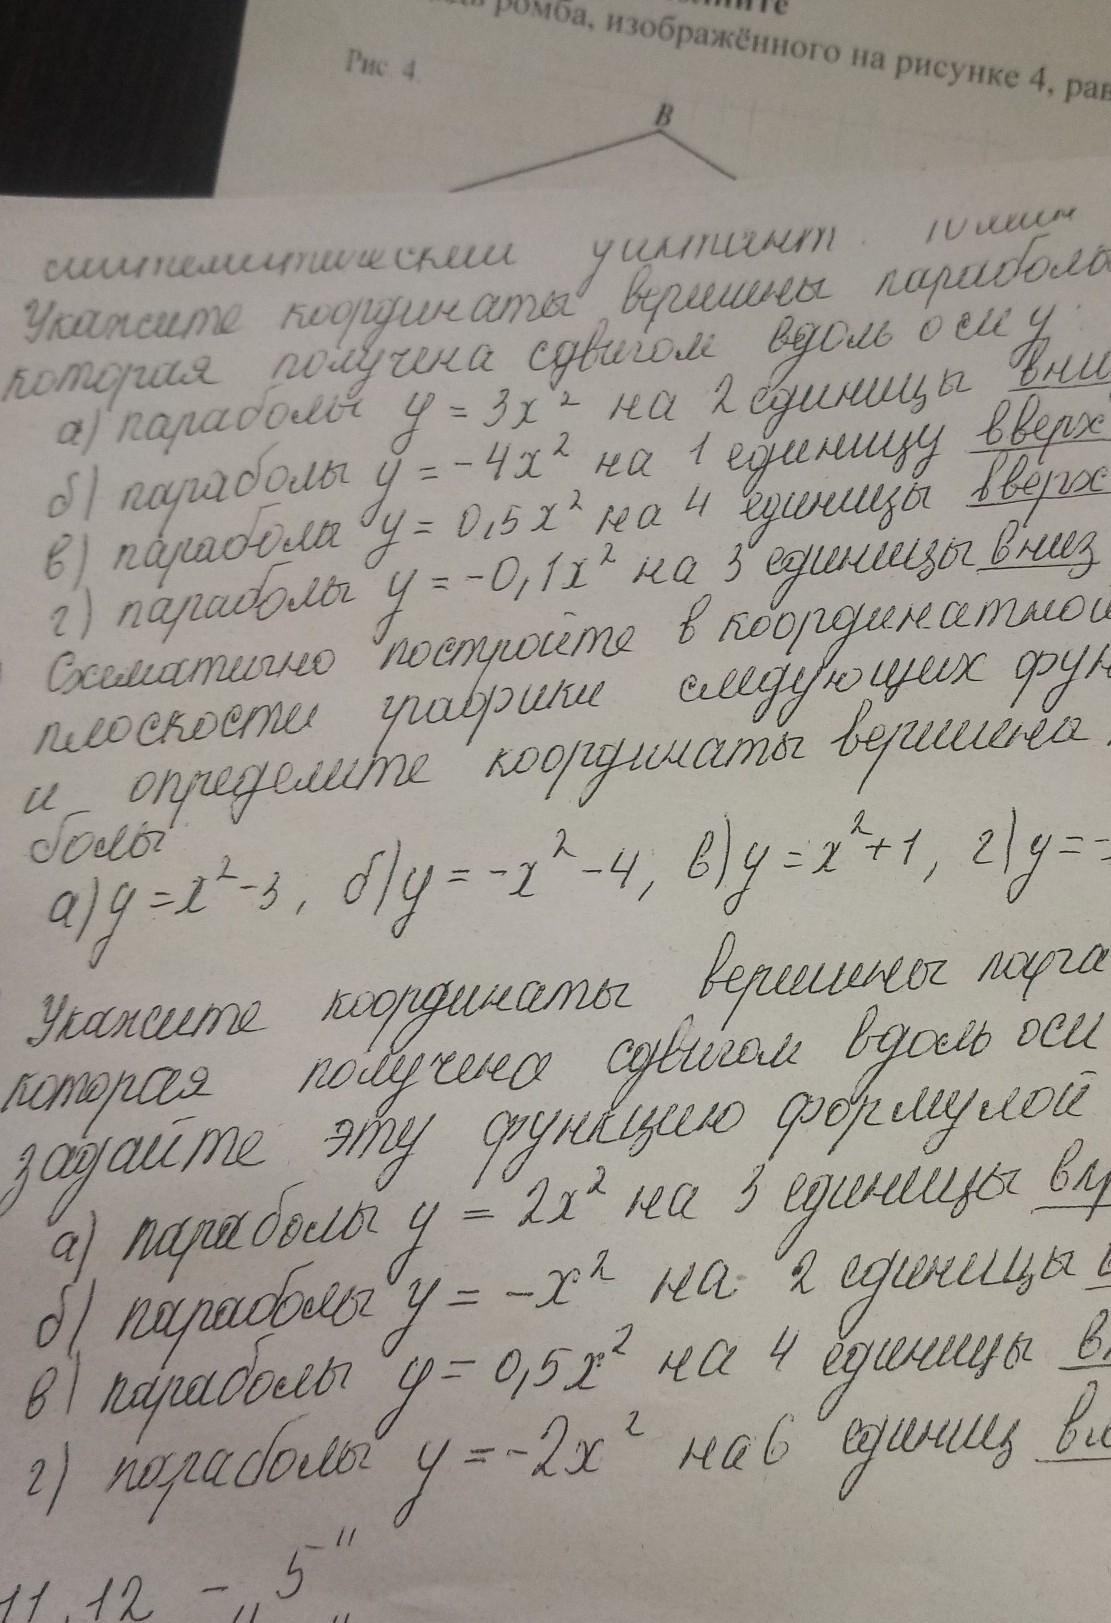 ромба, изображённого на рисунке 4, рав
Рис. 4.
B
Укажите координаты вершины параболы
которая получена сдвигом вдоль оси y:
а) параболы y = 3x² на 2 единицы вни
б) параболы y = -4x² на 1 единицу вверх
в) парабола y = 0,5x² на 4 единицы вверх
г) параболы y = -0,1x² на 3 единицы вниз
Схематично постройте в координатной
плоскости графики следующих фун
и определите координаты вершина
болы
а) y = x² - 3, б) y = -x² - 4, в) y = x² + 1, г) y = -
Укажите координаты вершины пара
которая получена сдвигом вдоль оси
задайте эту функцию формулой
а) параболы y = 2x² на 3 единицы впр
б) параболы y = -x² на 2 единицы
в) параболы y = 0,5x² на 4 единицы
г) параболы y = -2x² на 6 единиц вл
11, 12 - 5"